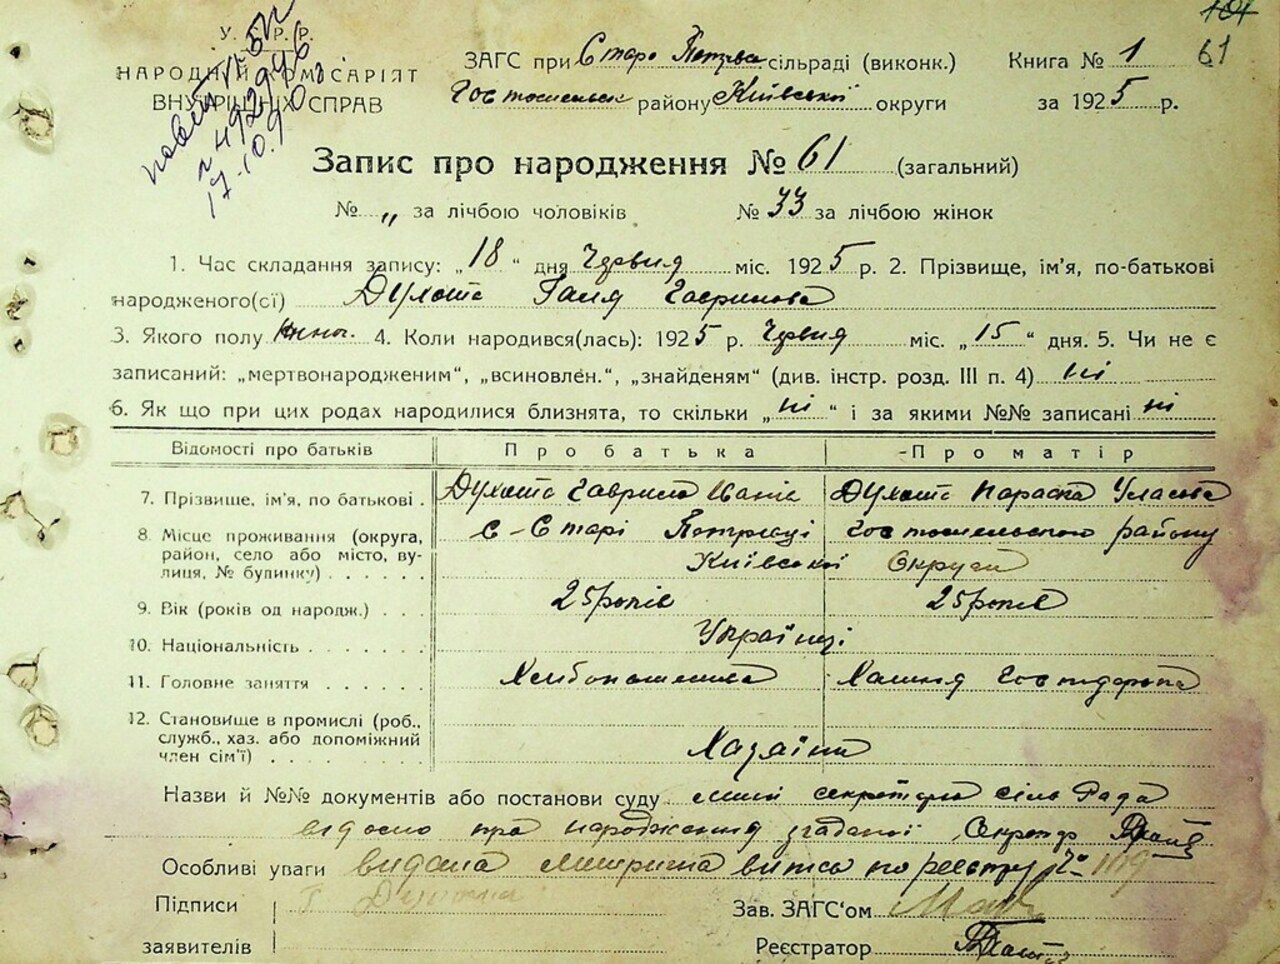 101
61
У. Р. Р.
НАРОДНІЙ КОМІСАРІЯТ
ВНУТРІШНІХ СПРАВ
17.10.9
ЗАГС при Старо Петрівс. сільраді (виконк.) Книга № 1
Гостомельськ району Київської округи за 1925 р.
Запис про народження № 61 (загальний)
№ „ за лічбою чоловіків № 33 за лічбою жінок
1. Час складання запису: „18“ дня Червня міс. 1925 р. 2. Прізвище, ім’я, по-батькові
народженого(сї) Духота Галя Гаврилова
3. Якого полу жіно. 4. Коли народився(лась): 1925 р. Червня міс. „15“ дня. 5. Чи не є
записаний: „мертвонародженим“, „всиновлен.“, „знайденям“ (див. інстр. розд. III п. 4) ні
6. Як що при цих родах народилися близнята, то скільки „ні“ і за якими №№ записані ні
Відомості про батьків Про батька Про матір
7. Прізвище, ім’я, по батькові . Духота Гаврило Іванів Духота Параска Уласова
8. Місце проживання (округа, с-Старі Петрівці Гостомельського району
район, село або місто, вулиця, № будинку) . . . . . Київської Округи
9. Вік (років од народж.) . . . 25 років 25 років
10. Національність . . . . . . . Українці
11. Головне заняття . . . . . . Хлібопашенна Хатня Господарка
12. Становище в промислі (роб.,
служб., хаз. або допоміжний
член сім’ї) . . . . . . . . . Хазяїни
Назви й №№ документів або постанови суду мині секретарю сіль Рада
відомо про народження згаданої Секретар
Особливі уваги видана метрична витсь по реєстру №
Підписи Г Духота Зав. ЗАГС‘ом
заявителів Реєстратор